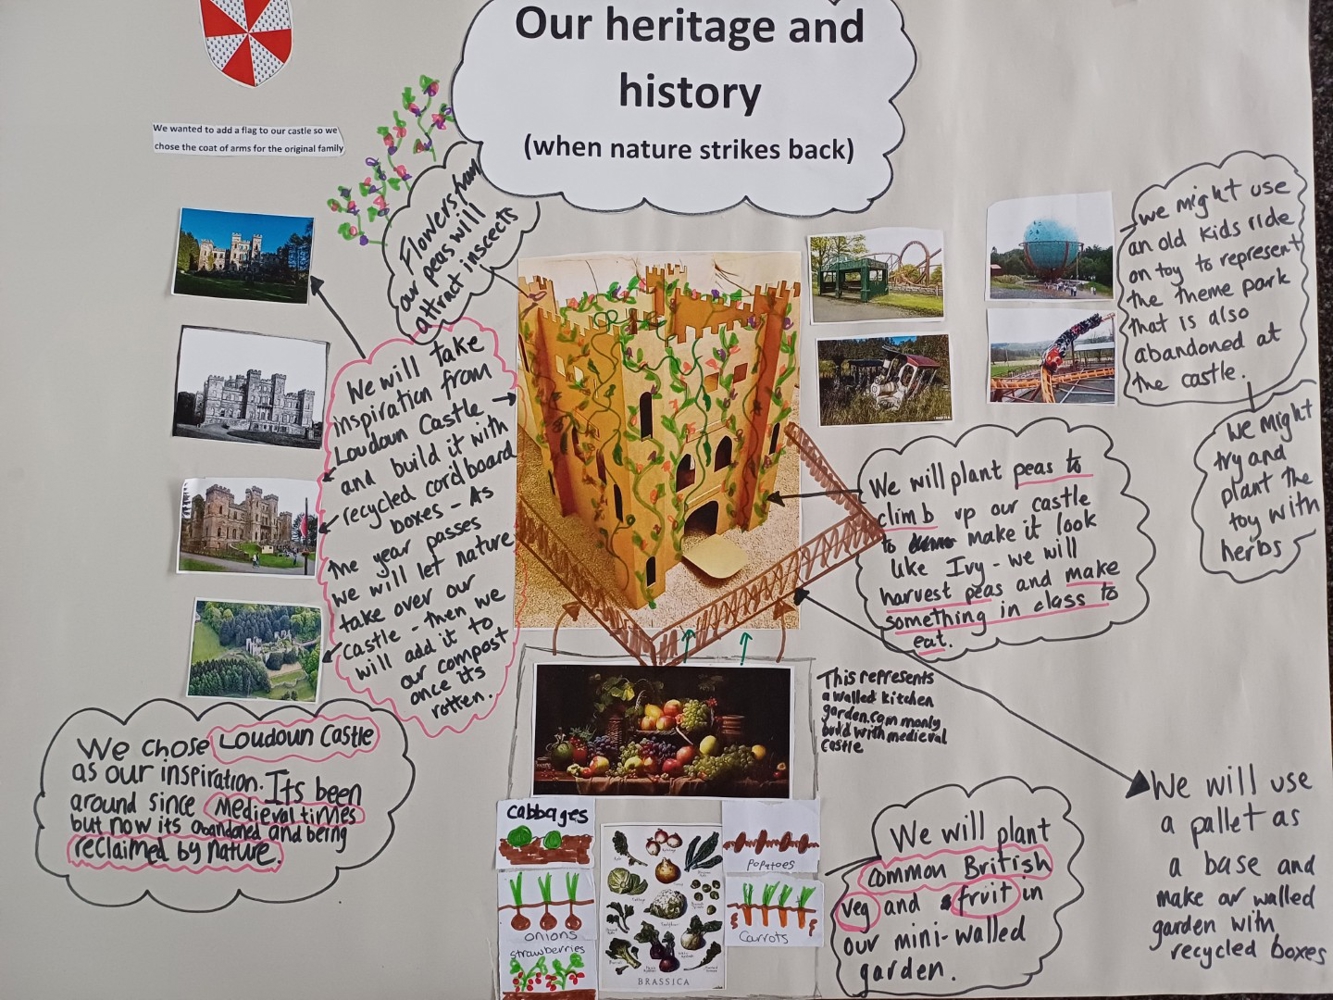 Our heritage and
history
(when nature strikes back)
We wanted to add a flag to our castle so we
chose the coat of arms for the original family
Flowers from
our peas will
attract inscects
We will take
inspiration from
Loudoun Castle
and build it with
recycled cordboard
boxes - As
the year passes
we will let nature
take over our
castle - then we
will add it to
our compost
once its
rotten.
We chose Loudoun Castle
as our inspiration. Its been
around since medieval times
but now its abandoned and being
reclaimed by nature.
we might use
an old kids ride
on toy to represent
the theme park
that is also
abandoned at
the castle.
We might
try and
plant the
toy with
herbs
We will plant peas to
climb up our castle
to make it look
like Ivy - we will
harvest peas and make
something in class to
eat.
This represents
a walled kitchen
garden. Commonly
build with medieval
castle
We will use
a pallet as
a base and
make or walled
garden with
recycled boxes
We will plant
common British
veg and fruit in
our mini-walled
garden.
cabbages
onions
strawberries
potatoes
carrots
BRASSICA